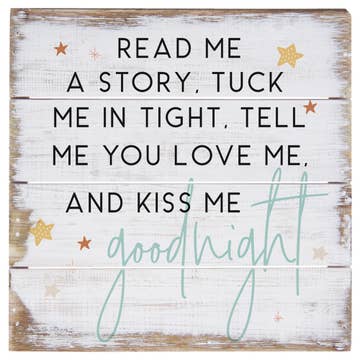 READ ME
A STORY, TUCK
ME IN TIGHT, TELL
ME YOU LOVE ME,
AND KISS ME
goodnight